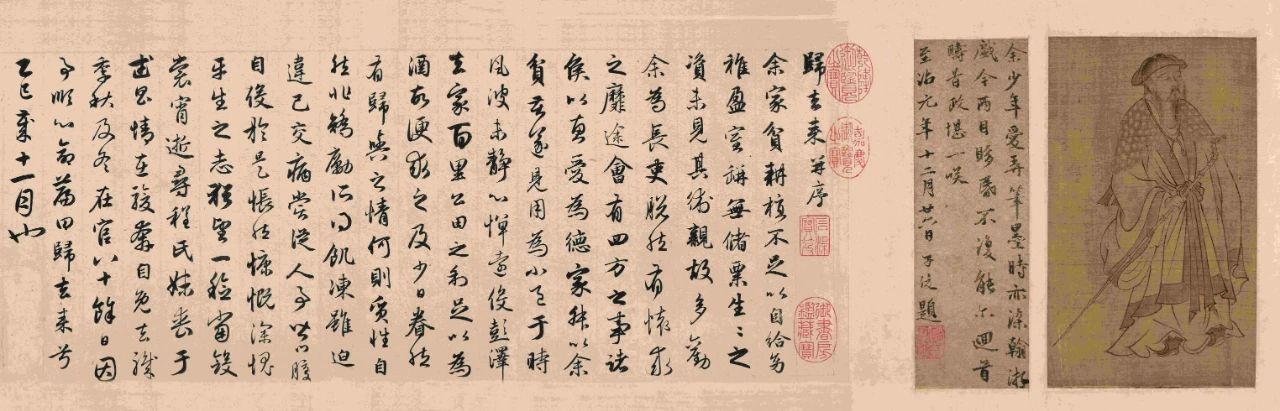 余少年愛弄筆墨時亦染翰游
戲今兩目眵昏不復能尔回首
疇昔政堪一咲
至治元年十二月廿六日子俊題
乾隆御覽之寶
嘉慶御覽之寶
石渠寶笈
御書房鑑藏寶
歸去来并序
余家貧耕植不足以自給幼
稚盈室缾無儲粟生〻之
資未見其術親故多勸
余為長吏脫然有懷求
之靡途會有四方之事諸
侯以惠愛為德家叔以余
貧苦遂見用為小邑于時
風波未靜心憚遠役彭澤
去家百里公田之利足以為
酒故便求之及少日眷然
有歸與之情何則質性自
然非矯勵所得飢凍雖迫
違己交病嘗從人事皆口腹
自役於是悵然慷慨深愧
平生之志猶望一稔當斂
裳宵逝尋程氏妹喪于
武昌情在駿奔自免去職
季秋及冬在官八十餘日因
事順心命篇曰歸去来兮
乙巳歲十一月也